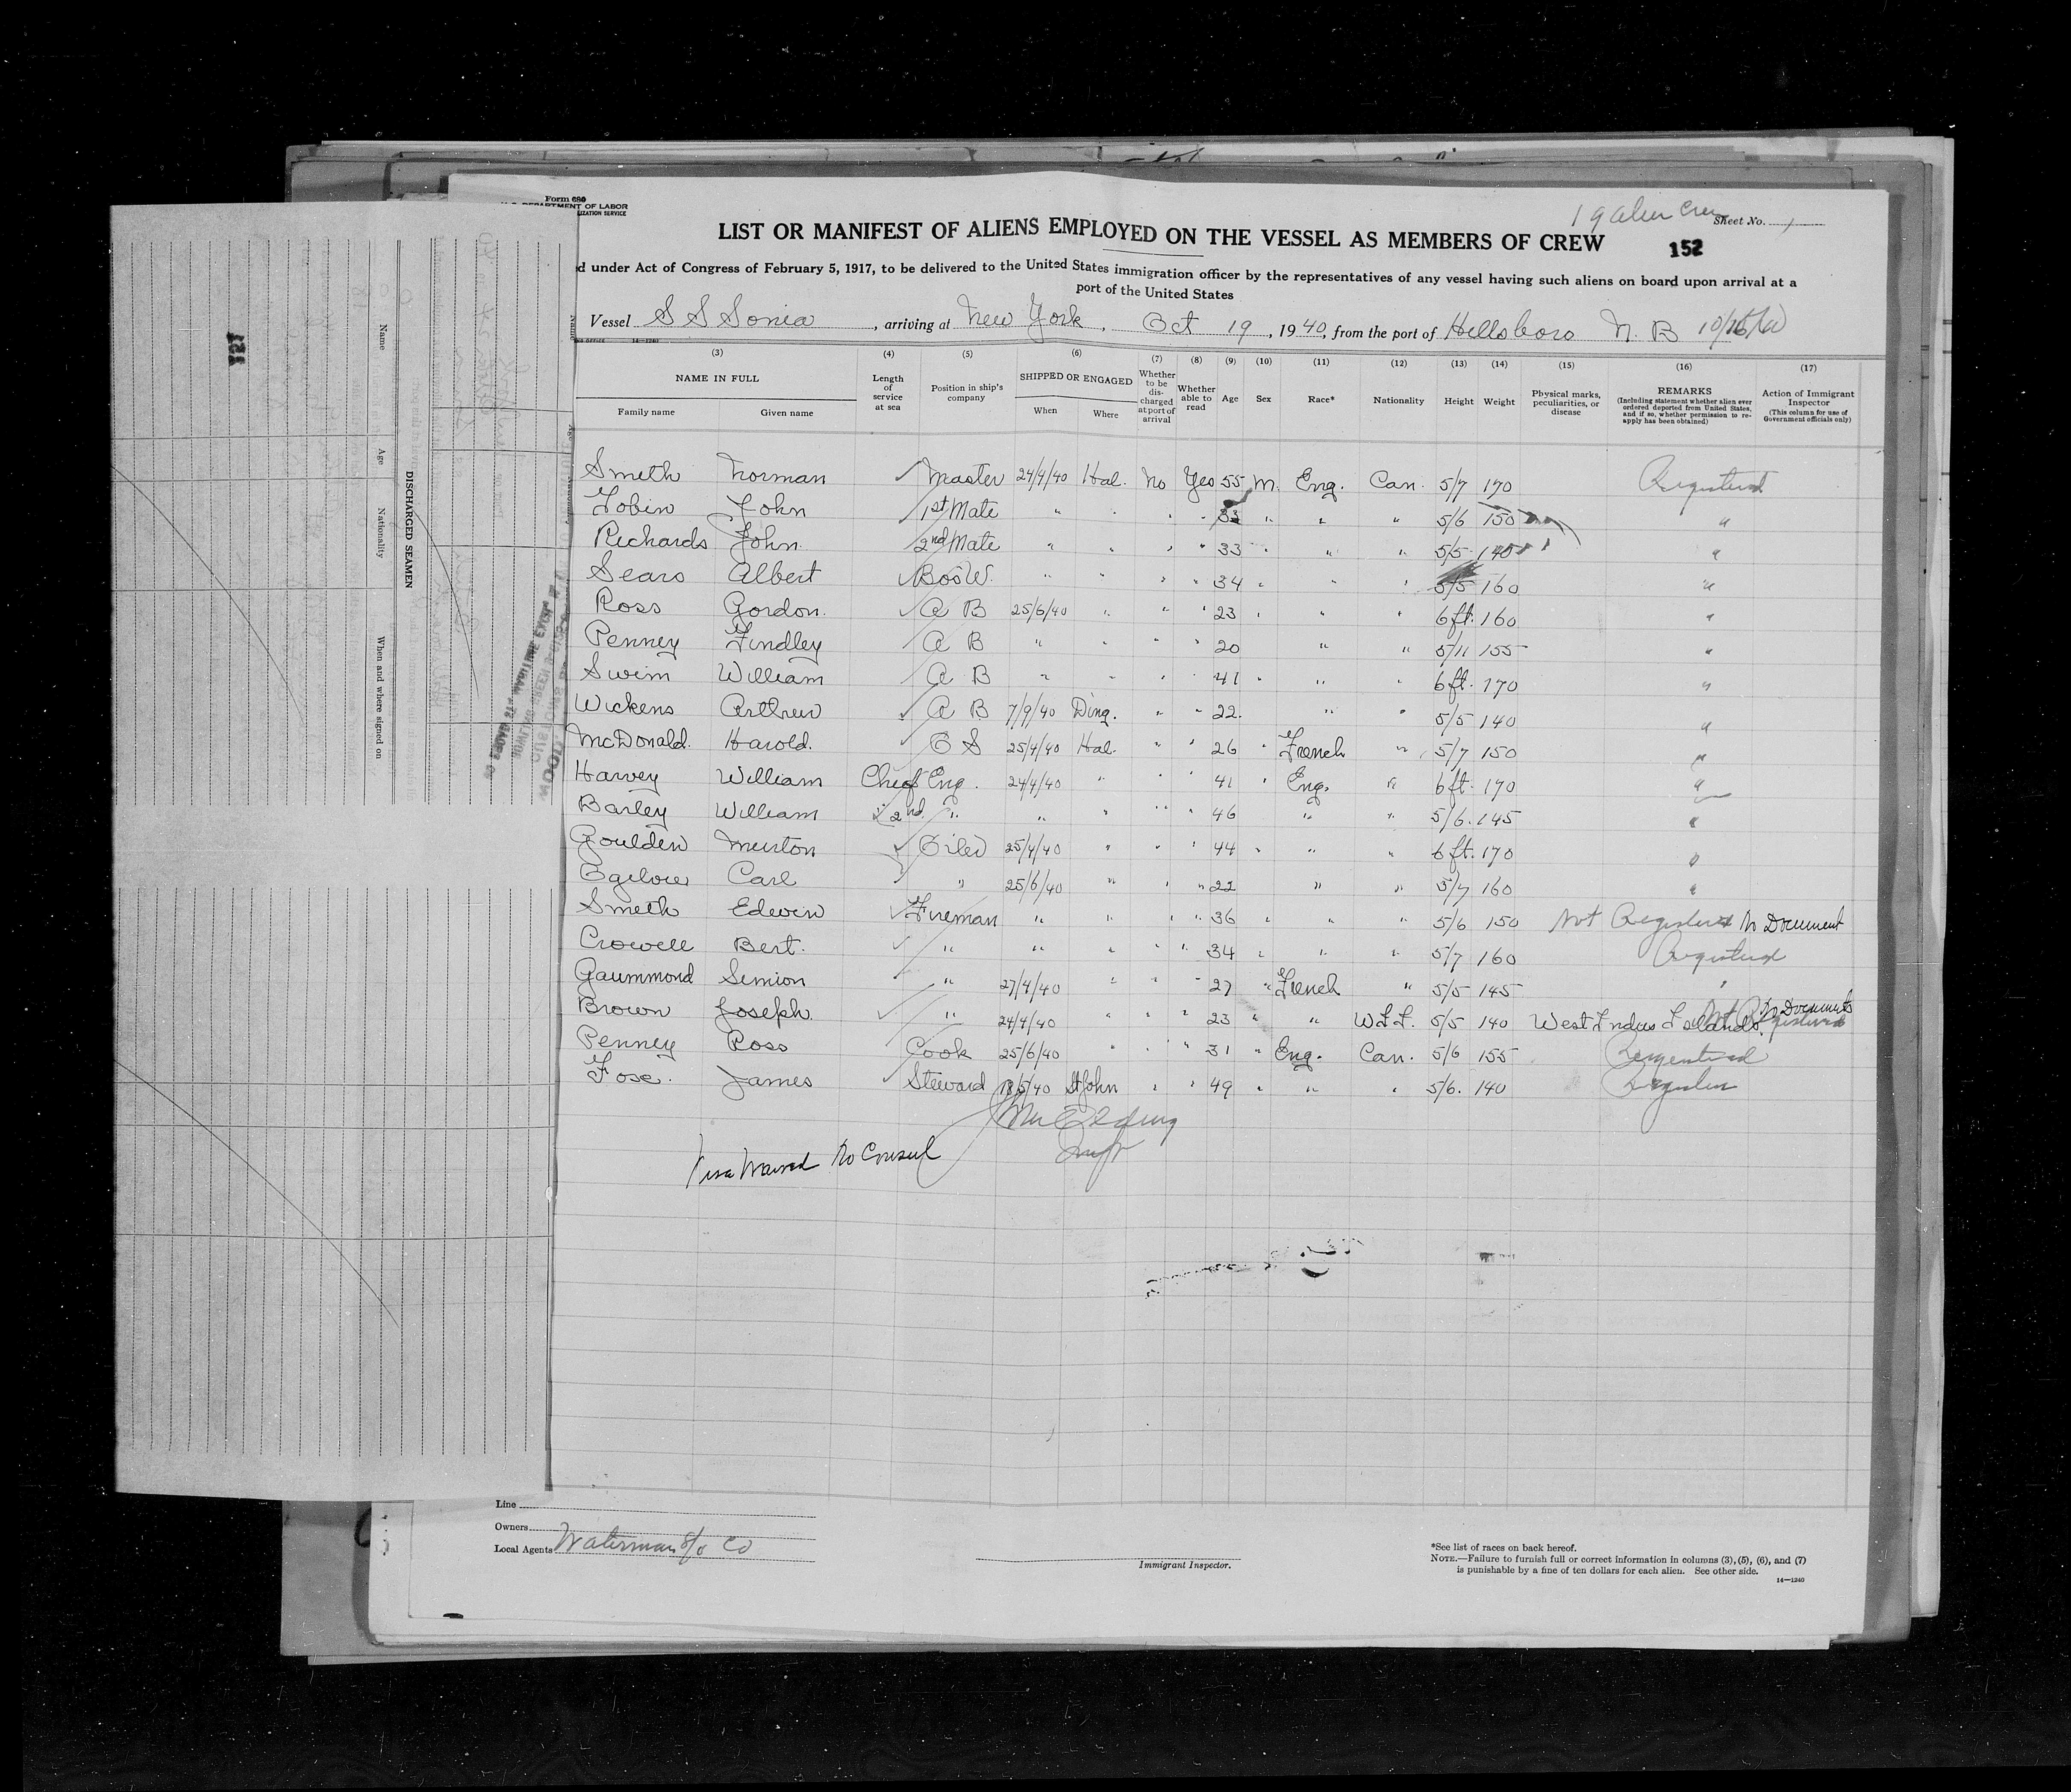 Form 680
U.S. DEPARTMENT OF LABOR
IZATION SERVICE
19 alien crew
Sheet No. 1
LIST OR MANIFEST OF ALIENS EMPLOYED ON THE VESSEL AS MEMBERS OF CREW
152
d under Act of Congress of February 5, 1917, to be delivered to the United States immigration officer by the representatives of any vessel having such aliens on board upon arrival at a
port of the United States
Vessel S S Sonia, arriving at New York, Oct 19, 1940, from the port of Hillsboro N. B
14—1240
(3) (4) (5) (6) (7) (8) (9) (10) (11) (12) (13) (14) (15) (16) (17)
NAME IN FULL Length of service at sea Position in ship's company SHIPPED OR ENGAGED Whether to be discharged at port of arrival Whether able to read Age Sex Race* Nationality Height Weight Physical marks, peculiarities, or disease REMARKS (Including statement whether alien ever ordered deported from United States, and if so, whether permission to reapply has been obtained) Action of Immigrant Inspector (This column for use of Government officials only)
Family name Given name When Where
Smith Norman Master 24/4/40 Hal. No Yes 55 M. Eng. Can. 5/7 170 Registered
Tobin John 1st Mate " " " " 33 " " " 5/6 150 "
Richards John 2nd Mate " " " " 33 " " " 5/5 140 "
Sears Albert BosW. " " " " 34 " " " 5/5 160 "
Ross Gordon. A B 25/6/40 " " " 23 " " " 6 ft. 160 "
Penney Findley A B " " " 20 " " 5/11 155 "
Swim William A B " " " " 41 " " " 6 ft. 170 "
Wickens Arthur A B 7/9/40 Ding. " " 22. " " 5/5 140 "
McDonald. Harold. O S 25/4/40 Hal. " " 26 " French " 5/7 150 "
Harvey William Chief Eng. 24/4/40 " " " 41 " Eng. " 6 ft. 170 "
Barley William 2nd " " " " " 46 " " 5/6. 145 "
Goulden Murton Oiler 25/4/40 " " " 44 " " " 6 ft. 170 "
Bgelow Carl " 25/6/40 " " " 22 " " 5/7 160 "
Smith Edwin Fireman " " " " 36 " " " 5/6 150 Not Registered No Document
Crowell Bert. " " " " " 34 " " " 5/7 160 Registered
Gaummond Simion " 27/4/40 " " " 27 " French " 5/5 145 "
Brown Joseph. " 24/4/40 " " " 23 " " W.I.I. 5/5 140 West Indies Islands. Not Registered No Documents
Penney Ross Cook 25/6/40 " " " 31 " Eng. Can. 5/6 155 Registered
Fose. James Steward St John " " 49 " " " 5/6. 140 Register
Visa Waived No Consul
Line
Owners
Local Agents Waterman S/S Co
Immigrant Inspector.
*See list of races on back hereof.
NOTE.—Failure to furnish full or correct information in columns (3), (5), (6), and (7)
is punishable by a fine of ten dollars for each alien. See other side.
14—1240
DISCHARGED SEAMEN
Name
Age
Nationality
When and where signed on
151